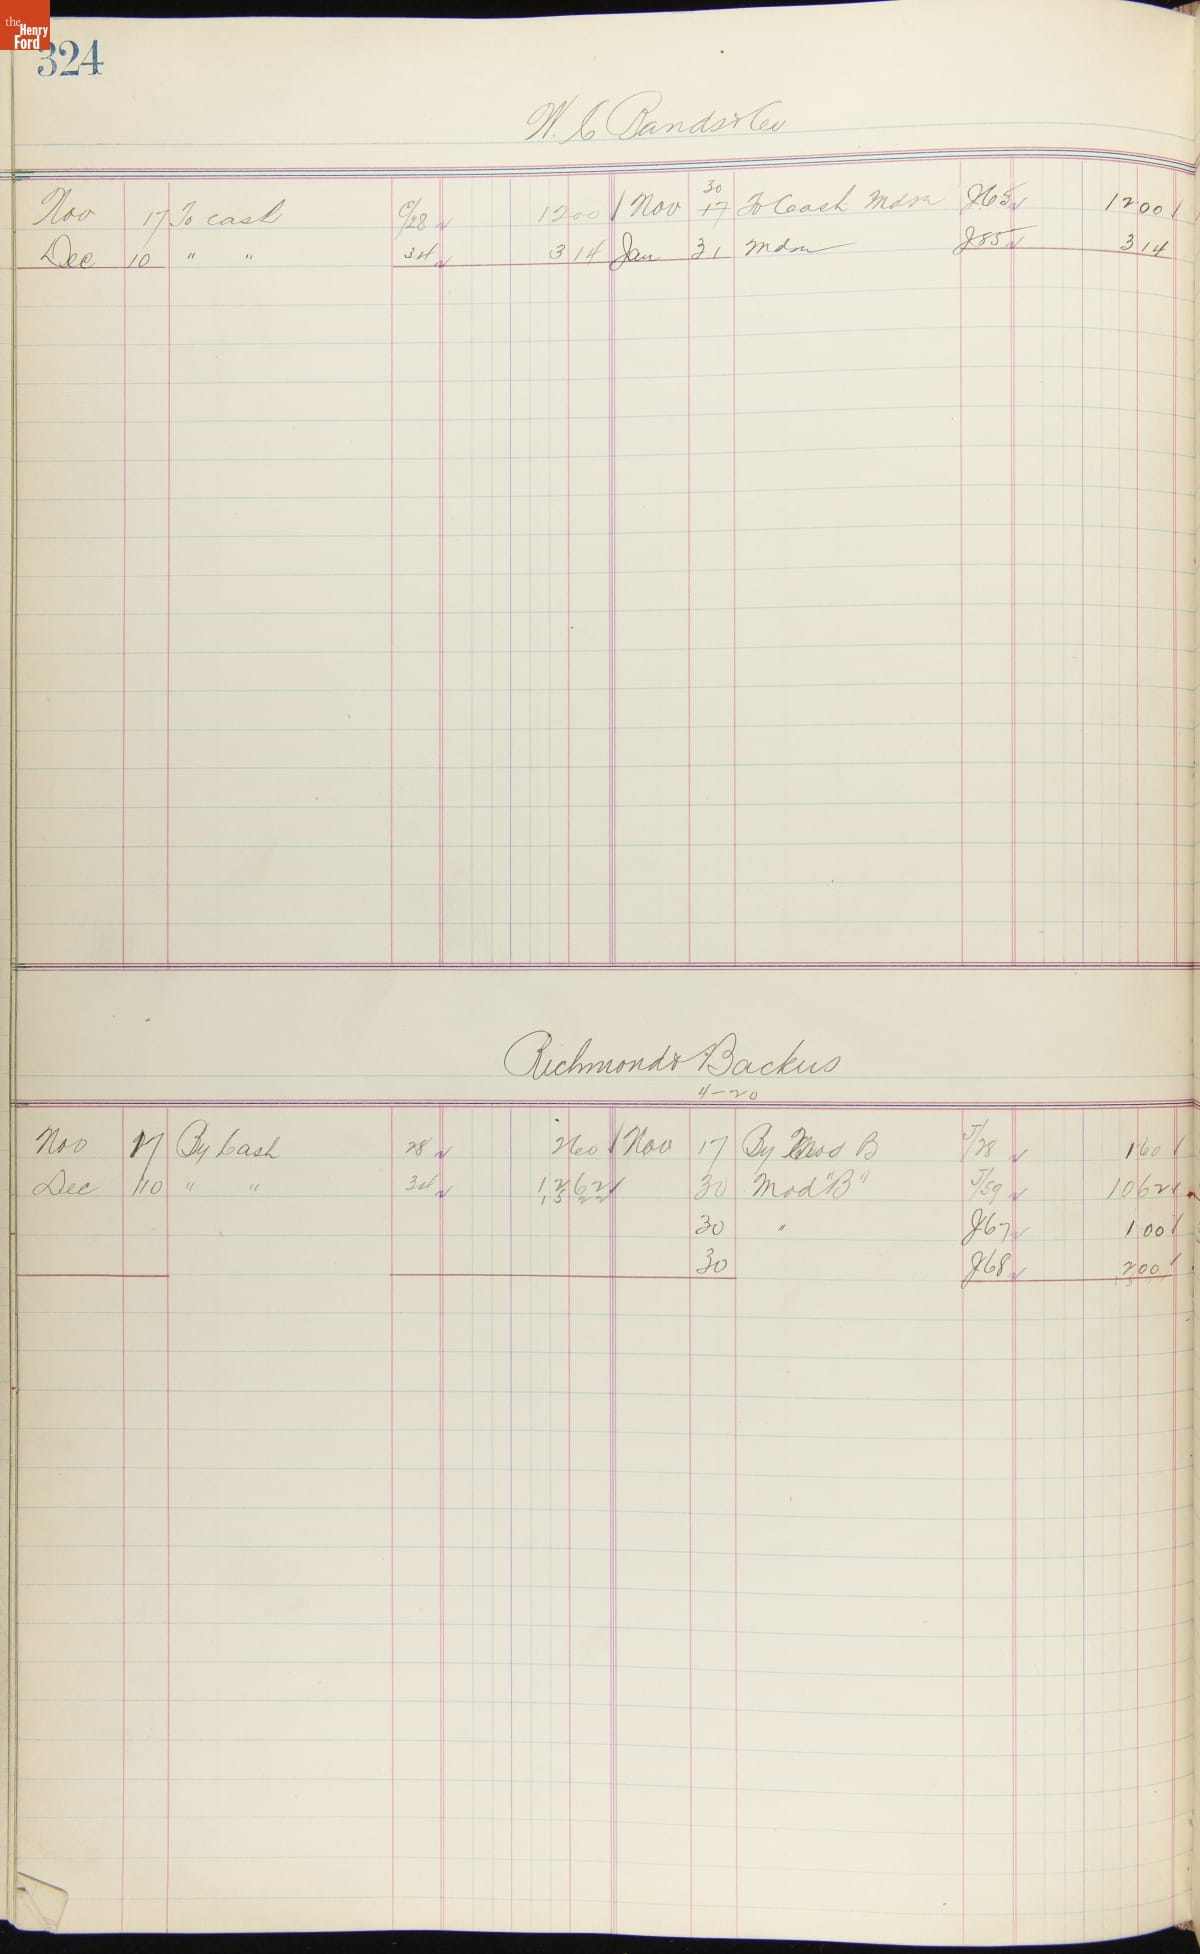 the Henry Ford
324
W. C Rands & Co
Nov 17 To cash C/28 1200 Nov 30 17 To Cash Mdse J65 1200
Dec 10 " " 34 314 Jan 31 Mdse J85 314
Richmond & Backus
4-20
Nov 17 By Cash 28 260 Nov 17 By Mod B J/28 160
Dec 10 " " 34 1262 30 Mod "B" J/59 1062
1522
30 " J67 100
30 J68 200